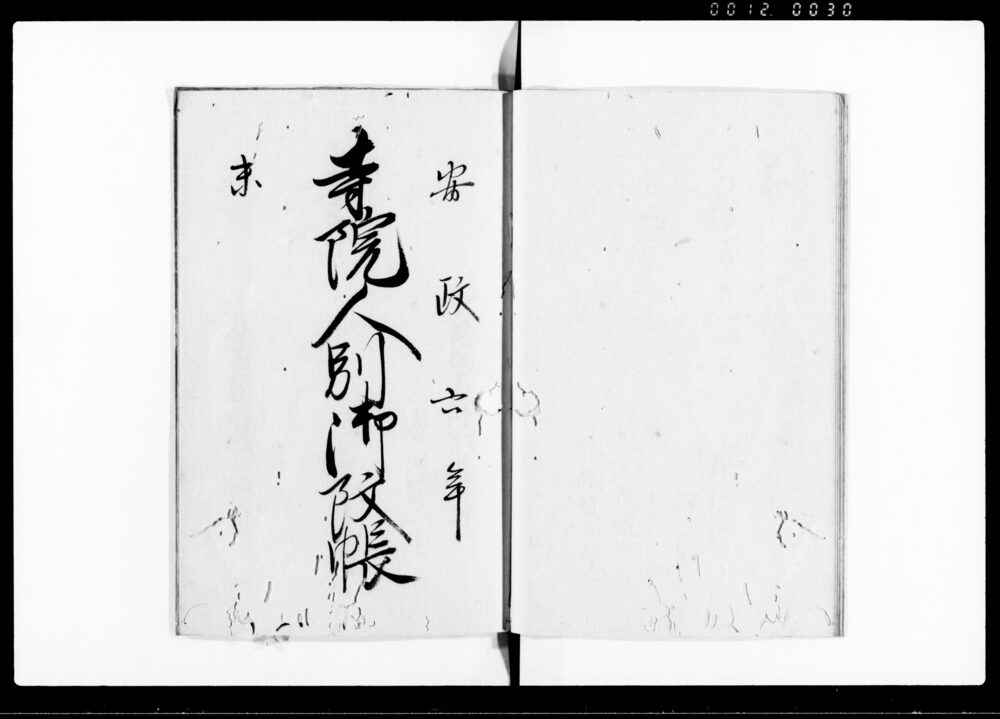 0012. 0030
安政六年
寺院人別御改帳
未